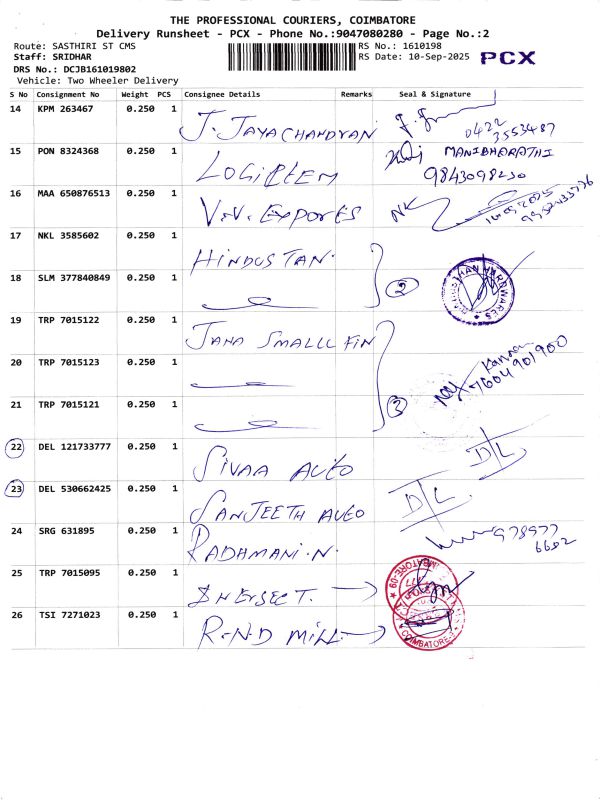 THE PROFESSIONAL COURIERS, COIMBATORE
Delivery Runsheet - PCX - Phone No.:9047080280 - Page No.:2
Route: SASTHIRI ST CMS RS No.: 1610198
Staff: SRIDHAR RS Date: 10-Sep-2025 PCX
DRS No.: DCJB161019802
Vehicle: Two Wheeler Delivery
S No Consignment No Weight PCS Consignee Details Remarks Seal & Signature
14 KPM 263467 0.250 1 J. JAYACHANDRAN 0422 3553487
15 PON 8324368 0.250 1 MANIBHARATHI
9843098230
16 MAA 650876513 0.250 1 V.V. EXPORES NK
17 NKL 3585602 0.250 1 HINDUSTAN.
18 SLM 377840849 0.250 1 2
19 TRP 7015122 0.250 1 JANA SMALLL FIN
20 TRP 7015123 0.250 1 Kannan 7604901900
21 TRP 7015121 0.250 1 3
22 DEL 121733777 0.250 1 SIVAA AUTO D/L
23 DEL 530662425 0.250 1 SANJEETH AUTO D/L
24 SRG 631895 0.250 1 RADHAMANI.N. 978977 6602
25 TRP 7015095 0.250 1
26 TSI 7271023 0.250 1 R.N.D MILL
COIMBATORE